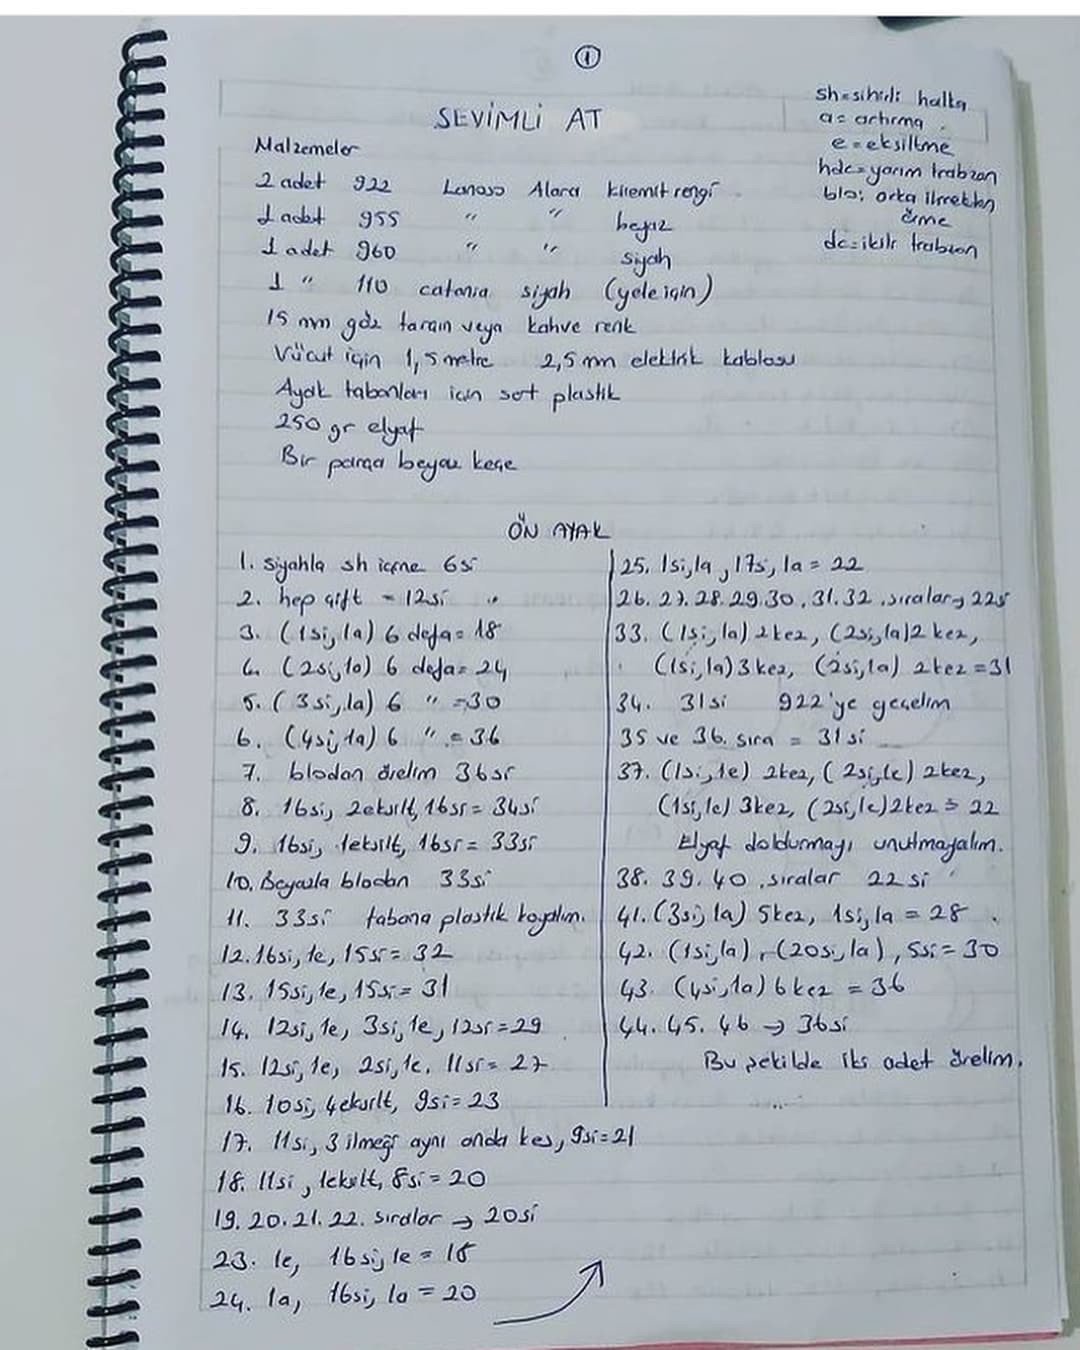 1
SEVİMLİ AT
sh=sihirli halka
a= artırma
e=eksiltme
hdc=yarım trabzan
blo: arka ilmekten
örme
dc=ikili trabzan
Malzemeler
2 adet 922 Lanoso Alara kiremit rengi
1 adet 955 " " beyaz
1 adet 960 " " siyah
1 " 110 catania siyah (yele için)
15 mm göz tarçın veya kahve renk
Vücut için 1,5 metre 2,5 mm elektrik kablosu
Ayak tabanları için sert plastik
250 gr elyaf
Bir parça beyaz keçe
ÖN AYAK
1. siyahla sh içine 6si
2. hep çift = 12si
3. (1si,1a) 6 defa= 18
4. (2si,1a) 6 defa= 24
5. (3si,1a) 6 " =30
6. (4si,1a) 6 " = 36
7. blodan örelim 36si
8. 16si, 2eksilt, 16si= 34si
9. 16si, 1eksilt, 16si= 33si
10. Beyazla blodan 33si
11. 33si tabana plastik koyalım.
12. 16si, 1e, 15si= 32
13. 15si, 1e, 15si= 31
14. 12si, 1e, 3si, 1e, 12si=29
15. 12si, 1e, 2si, 1e, 11si= 27
16. 10si, 4eksilt, 9si= 23
17. 11si, 3 ilmeği aynı anda kes, 9si=21
18. 11si, 1eksilt, 8si= 20
19. 20. 21. 22. sıralar → 20si
23. 1e, 16si, 1e = 18
24. 1a, 16si, 1a = 20
25. 1si,1a, 17si, 1a= 22
26. 27. 28. 29. 30. 31. 32. sıralar → 22si
33. (1si,1a) 2kez, (2si,1a) 2 kez,
(1si,1a) 3kez, (2si,1a) 2kez =31
34. 31si 922'ye geçelim
35 ve 36. sıra = 31si
37. (1si,1e) 2kez, (2si,1e) 2kez,
(1si,1e) 3kez, (2si,1e) 2kez = 22
Elyaf doldurmayı unutmayalım.
38. 39. 40. sıralar 22si
41. (3si,1a) 5kez, 1si,1a = 28
42. (1si,1a), (20si,1a), 5si= 30
43. (4si,1a) 6kez = 36
44. 45. 46 → 36si
Bu şekilde iki adet örelim.